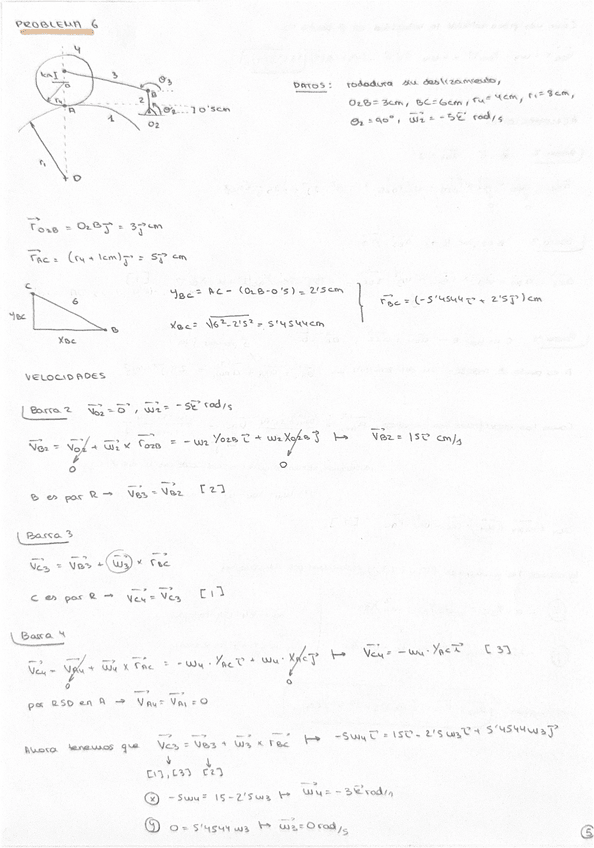 PROBLEMA 6
4
1cm
3
θ3
B
2
θ2
0'5cm
r4
A
1
O2
r1
O
DATOS: rodadura sin deslizamiento,
O2B = 3cm, BC = 6cm, r4 = 4cm, r1 = 8cm,
θ2 = 90°, ω2 = -5k rad/s
r O2B = O2B j = 3j cm
r AC = (r4 + 1cm) j = 5j cm
C
6
yBC
B
xBC
yBC = AC - (O2B - 0'5) = 2'5cm
xBC = √6² - 2'5² = 5'4544cm
r BC = (-5'4544 i + 2'5 j) cm
VELOCIDADES
Barra 2 vO2 = 0, ω2 = -5k rad/s
vB2 = vO2 + ω2 × rO2B = -ω2 yO2B i + ω2 xO2B j ↦ vB2 = 15i cm/s
0 0
B es par R → vB3 = vB2 [2]
Barra 3
vC3 = vB3 + ω3 × rBC
C es par R → vC4 = vC3 [1]
Barra 4
vC4 = vA4 + ω4 × rAC = -ω4 · yAC i + ω4 · xAC j ↦ vC4 = -ω4 · yAC i [3]
0 0
por RSD en A → vA4 = vA1 = 0
Ahora tenemos que vC3 = vB3 + ω3 × rBC ↦ -5ω4 i = 15i - 2'5ω3 i + 5'4544 ω3 j
[1],[3] [2]
x -5ω4 = 15 - 2'5ω3 ↦ ω4 = -3k rad/s
y 0 = 5'4544 ω3 ↦ ω3 = 0 rad/s
5